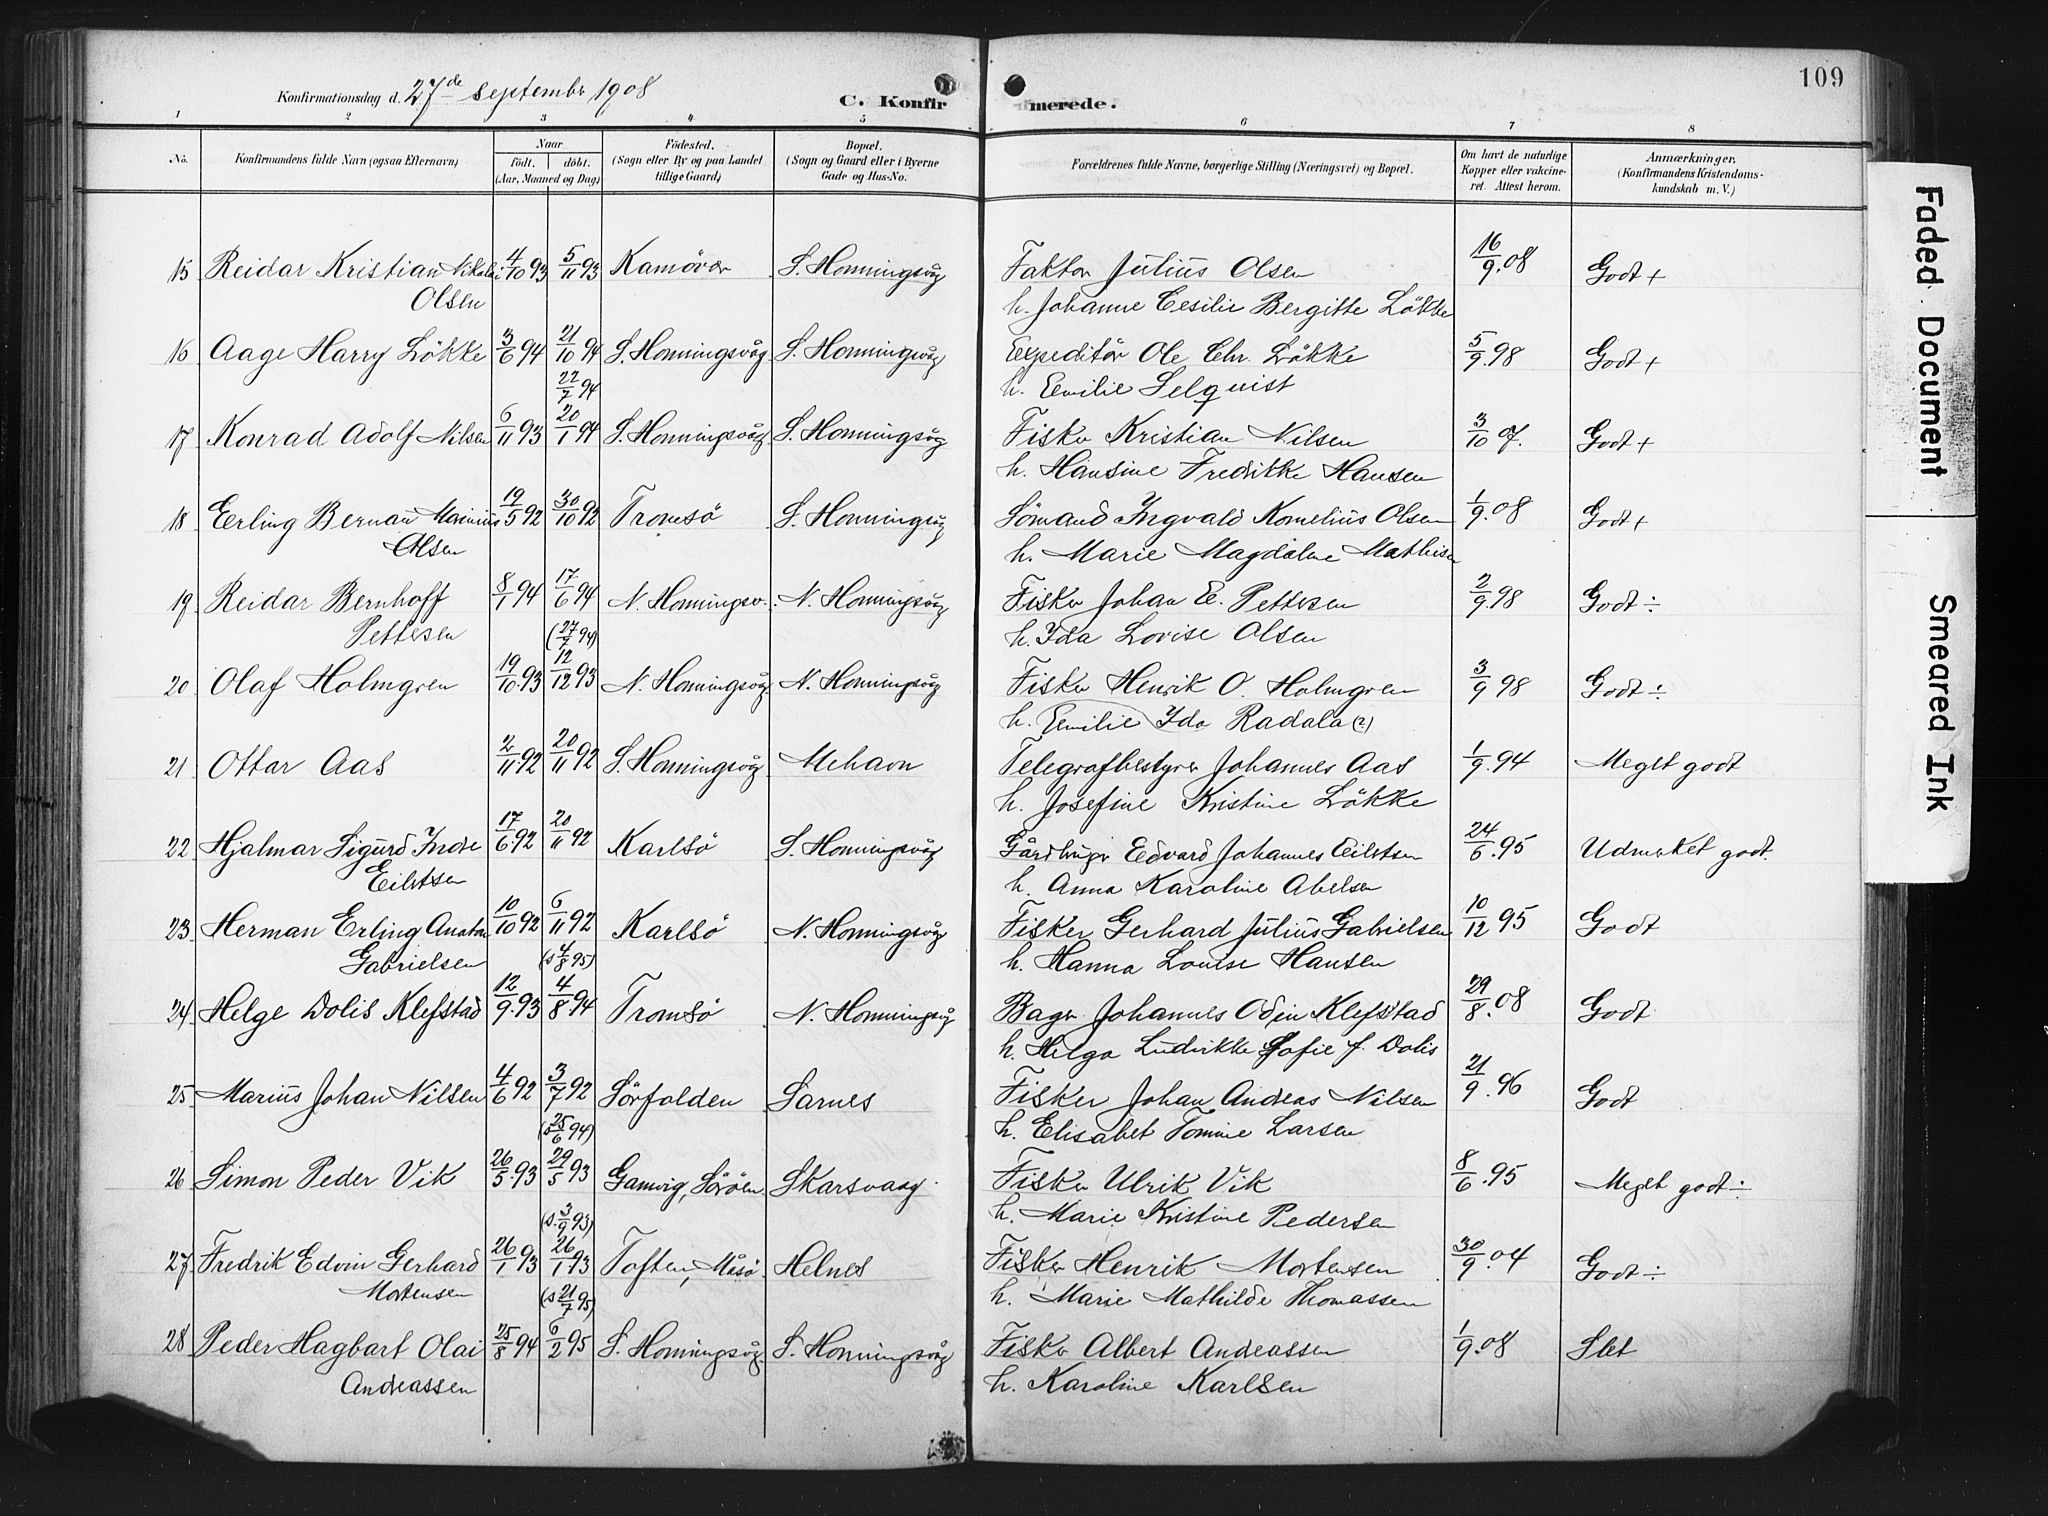 109
Konfirmationsdag d. 27de september 1908
C. Konfirmerede.
1 2 3 4 5 6 7 8
No. Konfirmandens fulde Navn (ogsaa Efternavn) Naar født. døbt. (Aar, Maaned og Dag) Fødested. (Sogn eller By og paa Landet tillige Gaard) Bopæl. (Sogn og Gaard eller i Byerne Gade og Hus-No. Forældrenes fulde Navne, borgerlige Stilling (Næringsvei) og Bopæl. Om havt de naturlige Kopper eller vakcineret. Attest herom. Anmærkninger. (Konfirmandens Kristendomskundskab m. V.)
15 Reidar Kristian Nikolai 4/10 93 5/11 93 Kamöver S. Honningsvåg Faktor Julius Olsen 16/9.08 Godt +
Olsen h. Johanne Cesilie Bergitte Lökke
16 Aage Harry Lökke 3/6 94 21/10 94 S. Honningsvåg S. Honningsvåg Expeditör Ole Chr. Lökke 5/9.98 Godt +
22/7 94 h. Emilie Selquist
17 Konrad Adolf Nilsen 6/11 93 20/1 94 S. Honningsvåg S. Honningsvåg Fisker Kristian Nilsen 3/10 07. Godt +
h. Hansine Fredrikke Hansen
18 Erling Bernau Marinius 19/5 92 30/10 92 Tromsö S. Honningsvåg Sömand Ingvald Kornelius Olsen 1/9.08 Godt +
Olsen h. Marie Magdalene Mathisen
19 Reidar Bernhoff 8/1 94 17/6 94 N. Honningsv. N. Honningsvåg Fisker Johan E. Pettersen 2/9.98 Godt ÷
Pettersen (27/7 94) h. Ida Lovise Olsen
20 Olaf Holmgren 19/10.93 12/12 93 N. Honningsvåg N. Honningsvåg Fisker Henrik O. Holmgren 3/9 98 Godt ÷
h. Emilie Ida Radala (?)
21 Ottar Aas 2/11 92 20/11 92 S. Honningsvåg Mehavn Telegrafbestyrer Johannes Aas 1/9.94 Meget godt
h. Josefine Kristine Lökke
22 Hjalmar Sigurd Indre 17/6.92 20/11 92 Karlsö S. Honningsvåg Gårdbruger Edvard Johannes Eilertsen 24/6.95 Udmerket godt.
Eilertsen h. Anna Karoline Abelsen
23 Herman Erling Anaton 10/10 92 6/11 92 Karlsö N. Honningsvåg Fisker Gerhard Julius Gabrielsen 10/12 95 Godt
Gabrielsen (s 4/8 95) h. Hanna Louise Hansen
24 Helge Dolis Klefstad 12/9.93 4/8.94 Tromsö N. Honningsvåg Bager Johannes Odin Klefstad 29/8.08 Godt
h. Helga Ludvikke Sofie f. Dolis
25 Marius Johan Nilsen 4/6 92 3/7 92 Sörfolden Sarnes Fisker Johan Andreas Nilsen 21/9.96 Godt
(s 25/6 94) h. Elisabet Tomine Larsen
26 Simon Peder Vik 26/5.93 29/5 93 Gamvig, Söröen Skarsvaag Fisker Ulrik Vik 8/6.95 Meget godt ÷
(s. 3/9 93) h. Marie Kristine Pedersen
27 Fredrik Edvin Gerhard 26/1 93 26/1 93 Toften, Måsö Helnes Fisker Henrik Mortensen 30/9.04 Godt ÷
Mortensen (s 21/7 95) h. Marie Mathilde Thomassen
28 Peder Hagbart Olai 25/8 94 6/2 95 S. Honningsvåg. S. Honningsvåg Fisker Albert Andreassen 1/9.08 Slet
Andreassen h. Karoline Karlsen
Faded Document
Smeared Ink